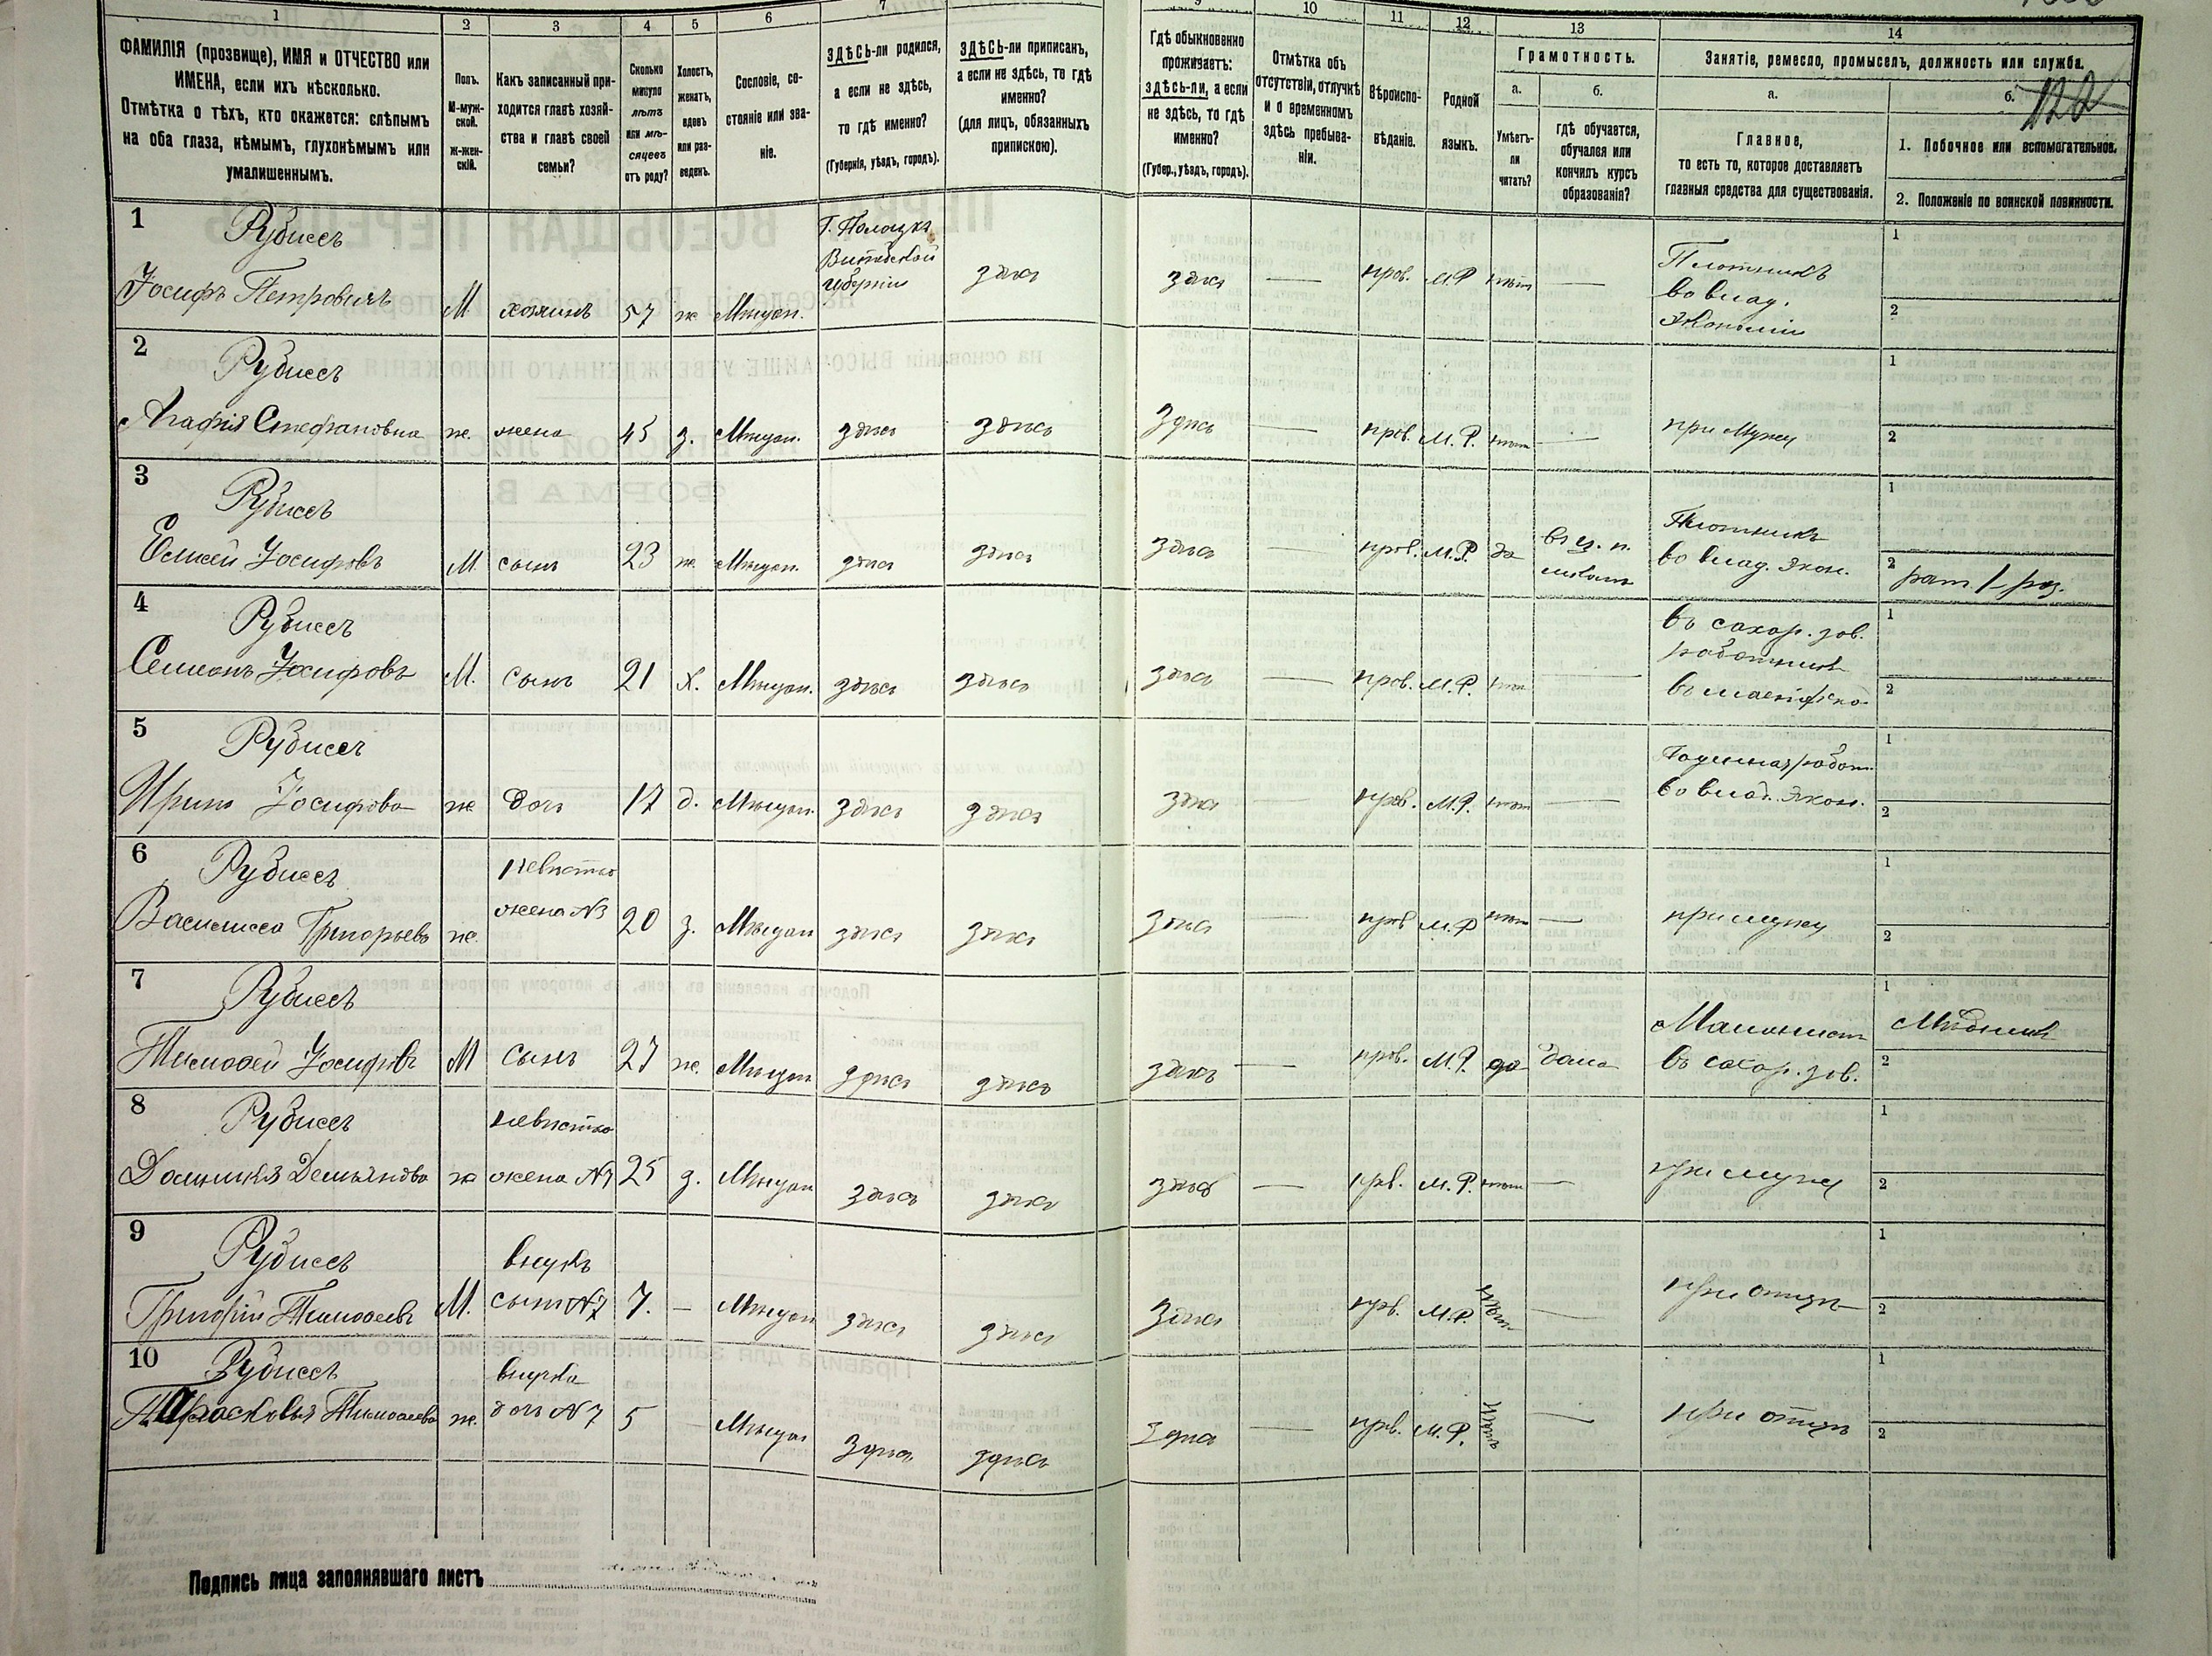 1 2 3 4 5 6 7 9 10 11 12 13 14
ФАМИЛІЯ (прозвище), ИМЯ и ОТЧЕСТВО или
ИМЕНА, если ихъ нѣсколько.
Отмѣтка о тѣхъ, кто окажется: слѣпымъ
на оба глаза, нѣмымъ, глухонѣмымъ или
умалишеннымъ.
Полъ.
М-муж-
ской.
ж-жен-
скій.
Какъ записанный при-
ходится главѣ хозяй-
ства и главѣ своей
семьи?
Сколько
минуло
лѣтъ
или мѣ-
сяцевъ
отъ роду?
Холостъ,
женатъ,
вдовъ
или раз-
веденъ.
Сословіе, со-
стояніе или зва-
ніе.
ЗДѢСЬ-ли родился,
а если не здѣсь,
то гдѣ именно?
(Губернія, уѣздъ, городъ).
ЗДѢСЬ-ли приписанъ,
а если не здѣсь, то гдѣ
именно?
(для лицъ, обязанныхъ
припискою).
Гдѣ обыкновенно
проживаетъ:
здѣсь-ли, а если
не здѣсь, то гдѣ
именно?
(Губер., уѣздъ, городъ).
Отмѣтка объ
отсутствіи, отлучкѣ
и о временномъ
здѣсь пребыва-
ніи.
Вѣроиспо-
вѣданіе.
Родной
языкъ.
Грамотность.
а.
Умѣетъ-
ли
читать?
б.
гдѣ обучается,
обучался или
кончилъ курсъ
образованія?
Занятіе, ремесло, промыселъ, должность или служба.
а.
Главное,
то есть то, которое доставляетъ
главныя средства для существованія.
б.
1. Побочное или вспомогательное.
2. Положеніе по воинской повинности.
1
Рубисъ
Іосифъ Петровичъ
М. хозяинъ 57 ж Мѣщан.
Г. Полоцкъ
Витебской
губерніи
здѣсь здѣсь — пров. М.Р нѣт —
Плотникъ
во влад.
Экономіи
1
2
2
Рубисъ
Агафія Стефановна ж. жена 45 з. Мѣщан. здѣсь здѣсь здѣсь — пров. М.Р. нѣт — при мужѣ
1
2
3
Рубисъ
Іосифовъ М. сынъ 23 ж. Мѣщан. здѣсь здѣсь здѣсь — пров. М.Р. да
Плотникъ
во влад. Экон.
1
2 рат. 1 раз.
4
Рубисъ
Семенъ Іосифовъ М. сынъ 21 х. Мѣщан. здѣсь здѣсь здѣсь — пров. М.Р. нѣт —
въ сахар. зав.
работникъ
1
2
5
Рубисъ
Ирина Іосифова ж дочь 17 д. Мѣщан. здѣсь здѣсь здѣсь — пров. М.Р. нѣт —
во влад. Экон.
1
2
6
Рубисъ
Василиса Григорьева ж.
невѣстка
жена №3
20 з. Мѣщан здѣсь здѣсь здѣсь — пров М.Р нѣт — при мужѣ
1
2
7
Рубисъ
Тимоѳей Іосифовъ М сынъ 27 ж. Мѣщан здѣсь здѣсь здѣсь — пров. М.Р. да дома
Машинист
въ сахар. зав.
1 Мѣдникъ
2
8
Рубисъ
Домникія Демьянова ж
невѣстка
жена №7
25 з. Мѣщан здѣсь здѣсь здѣсь — прв. М.Р. нѣт — при мужѣ
1
2
9
Рубисъ
Григорій Тимоѳеевъ М.
внукъ
сынъ №7
7. — Мѣщан здѣсь здѣсь здѣсь прв. М.Р. нѣт — при отцѣ
1
2
10
Рубисъ
Прасковья Тимоѳеева ж.
внучка
дочь №7
5 Мѣщан здѣсь здѣсь здѣсь — прв. М.Р. нѣтъ — при отцѣ
1
2
Подпись лица заполнявшаго листъ